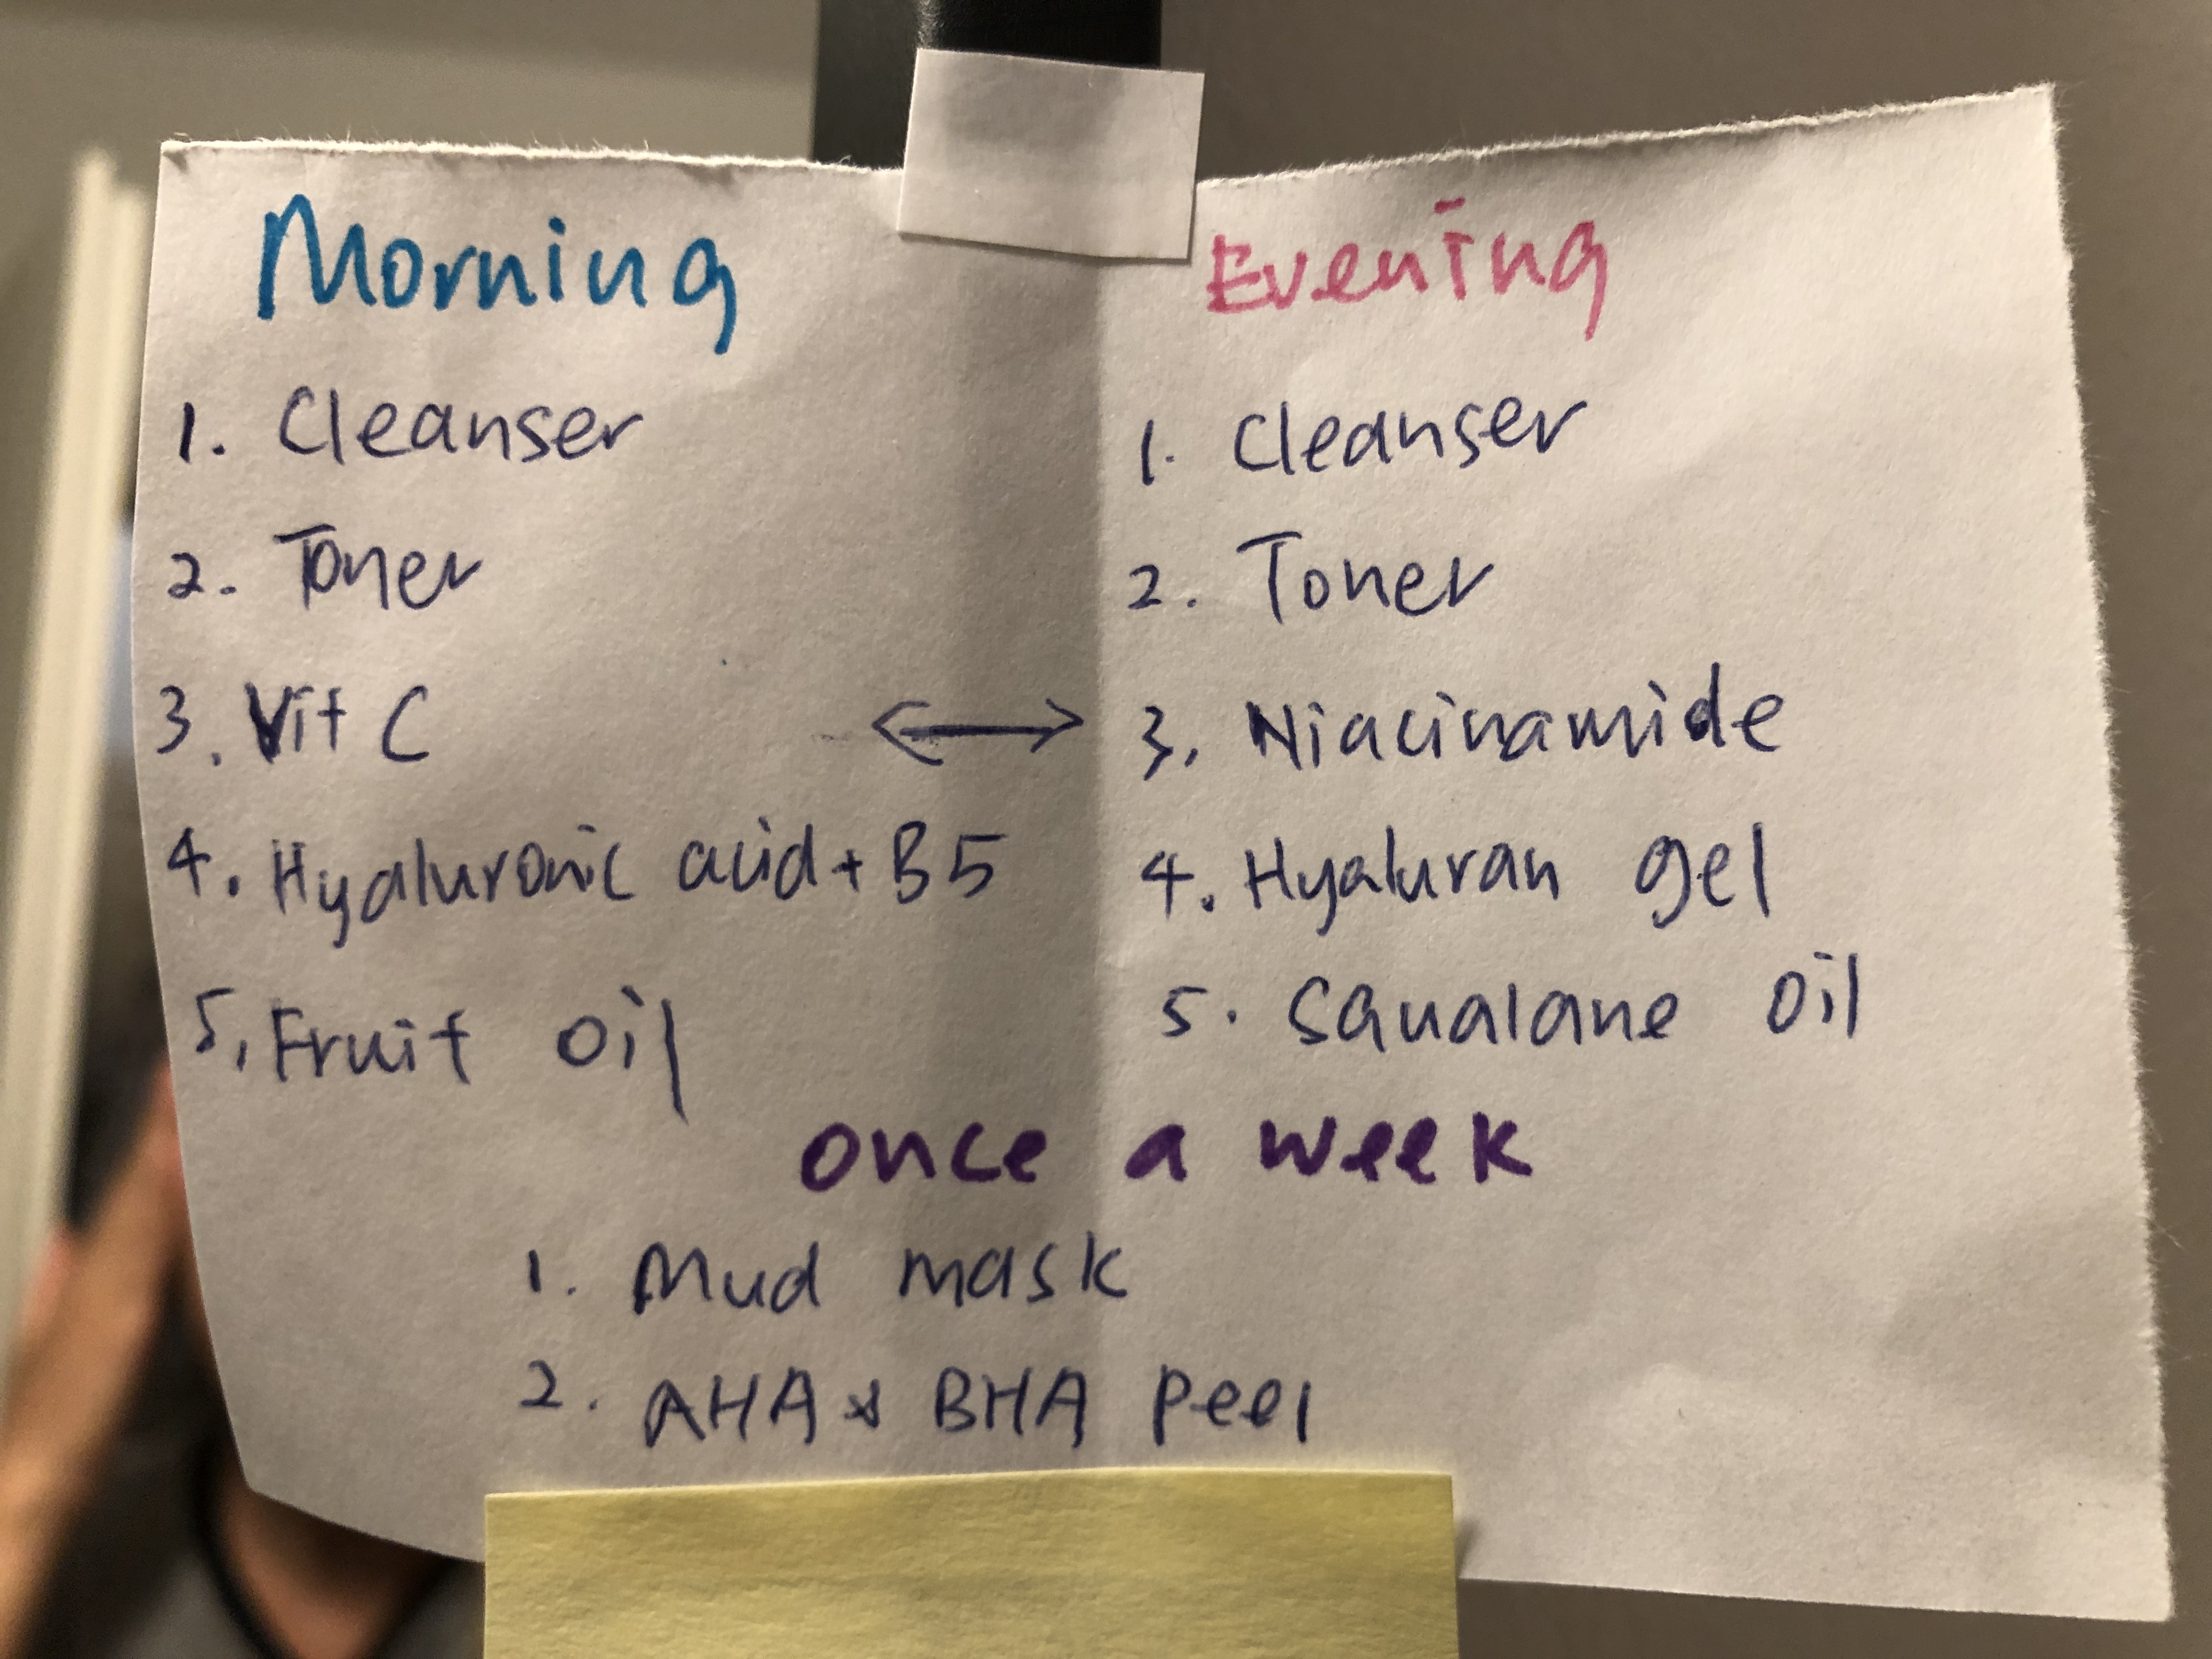 Morning
1. Cleanser
2. Toner
3. Vit C
4. Hyaluronic acid + B5
5. Fruit oil
Evening
1. Cleanser
2. Toner
↔ 3. Niacinamide
4. Hyaluran gel
5. Squalane oil
once a week
1. Mud mask
2. AHA & BHA peel